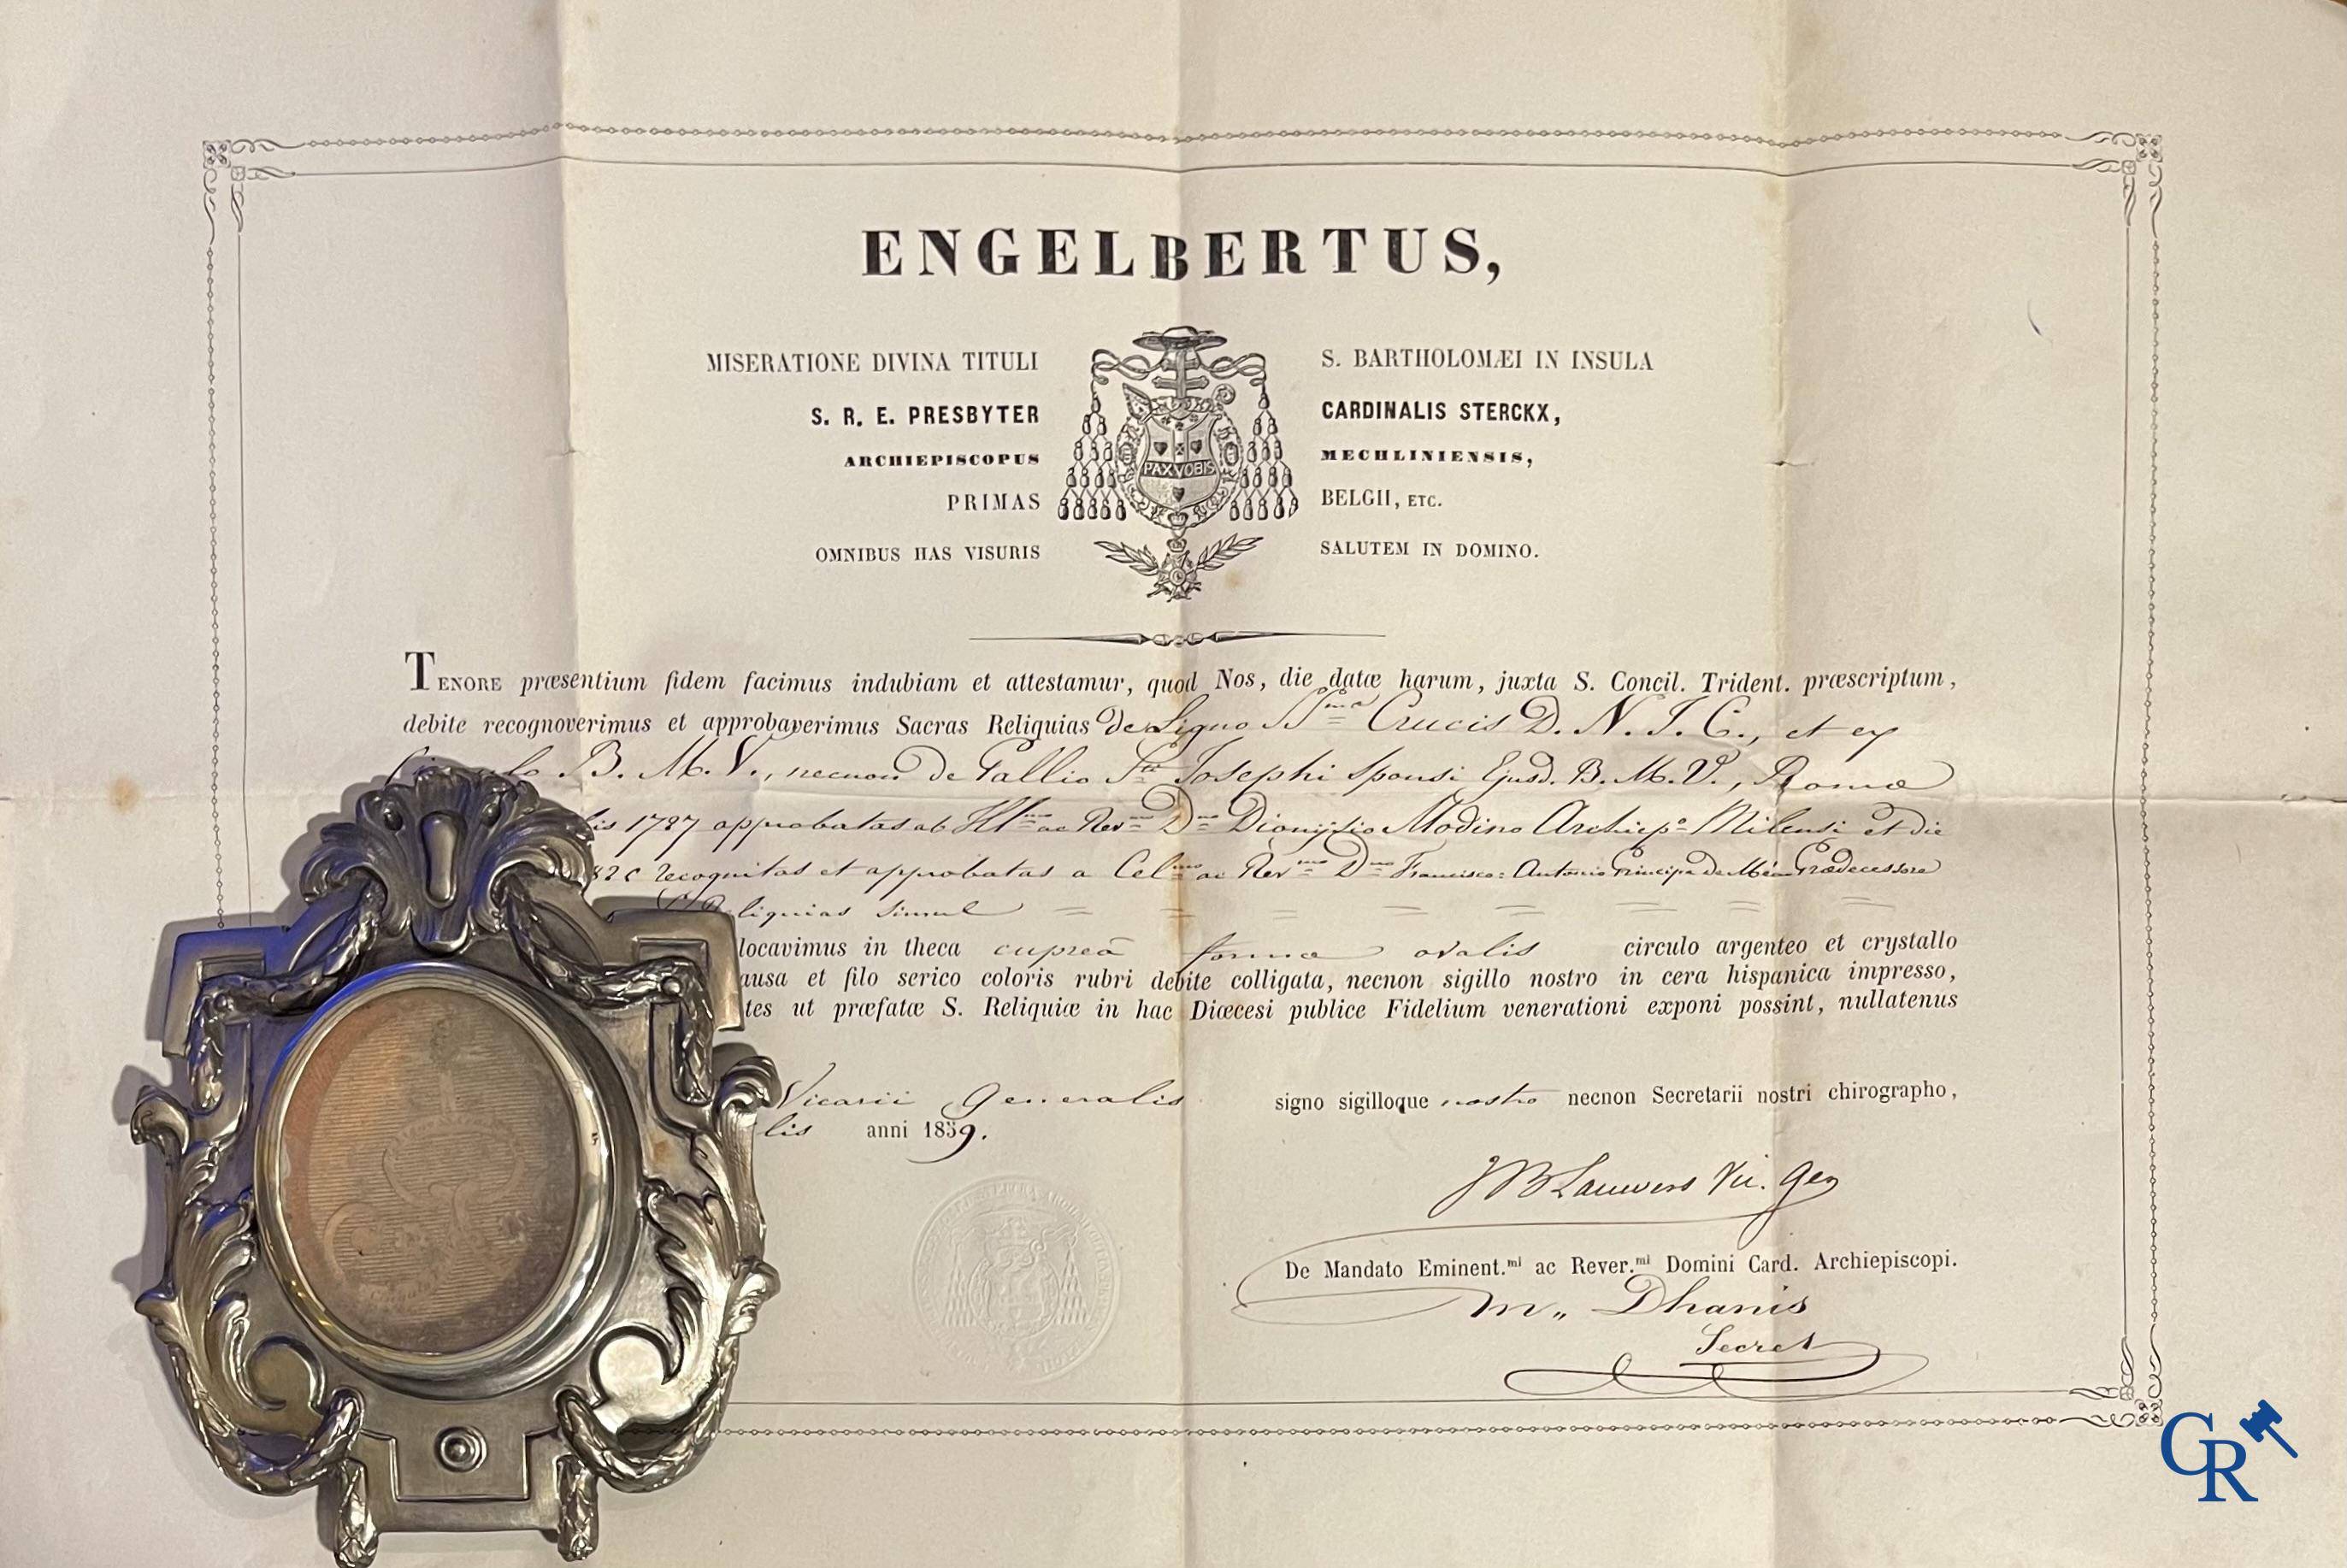 ENGELBERTUS,
MISERATIONE DIVINA TITULI S. BARTHOLOMÆI IN INSULA
S. R. E. PRESBYTER CARDINALIS STERCKX,
ARCHIEPISCOPUS MECHLINIENSIS,
PAX VOBIS
PRIMAS BELGII, ETC.
OMNIBUS HAS VISURIS SALUTEM IN DOMINO.
TENORE præsentium fidem facimus indubiam et attestamur, quod Nos, die datæ harum, juxta S. Concil. Trident. præscriptum,
debite recognoverimus et approbaverimus Sacras Reliquias de Ligno SSmæ Crucis D. N. J. C., et ex
B. M. V., necnon de Pallio Sti Josephi Sponsi Ejusd. B. M. V., Romæ
lis 1787 approbatas ab Illmo ac Revmo Dno Dionysio Modino Archiepo Milensi et die
recognitas et approbatas a Celmo ac Revmo Dno Francisco: Antonio Principe de Méan Prædecessore
Reliquias simul
locavimus in theca cupreâ formæ ovalis circulo argenteo et crystallo
ausa et filo serico coloris rubri debite colligata, necnon sigillo nostro in cera hispanica impresso,
tes ut præfatæ S. Reliquiæ in hac Diœcesi publice Fidelium venerationi exponi possint, nullatenus
Vicarii Generalis signo sigilloque nostro necnon Secretarii nostri chirographo,
lis anni 1859.
J B Lauwers Vic. Gen
De Mandato Eminent.mi ac Rever.mi Domini Card. Archiepiscopi.
m,, Dhanis
Secret
CR